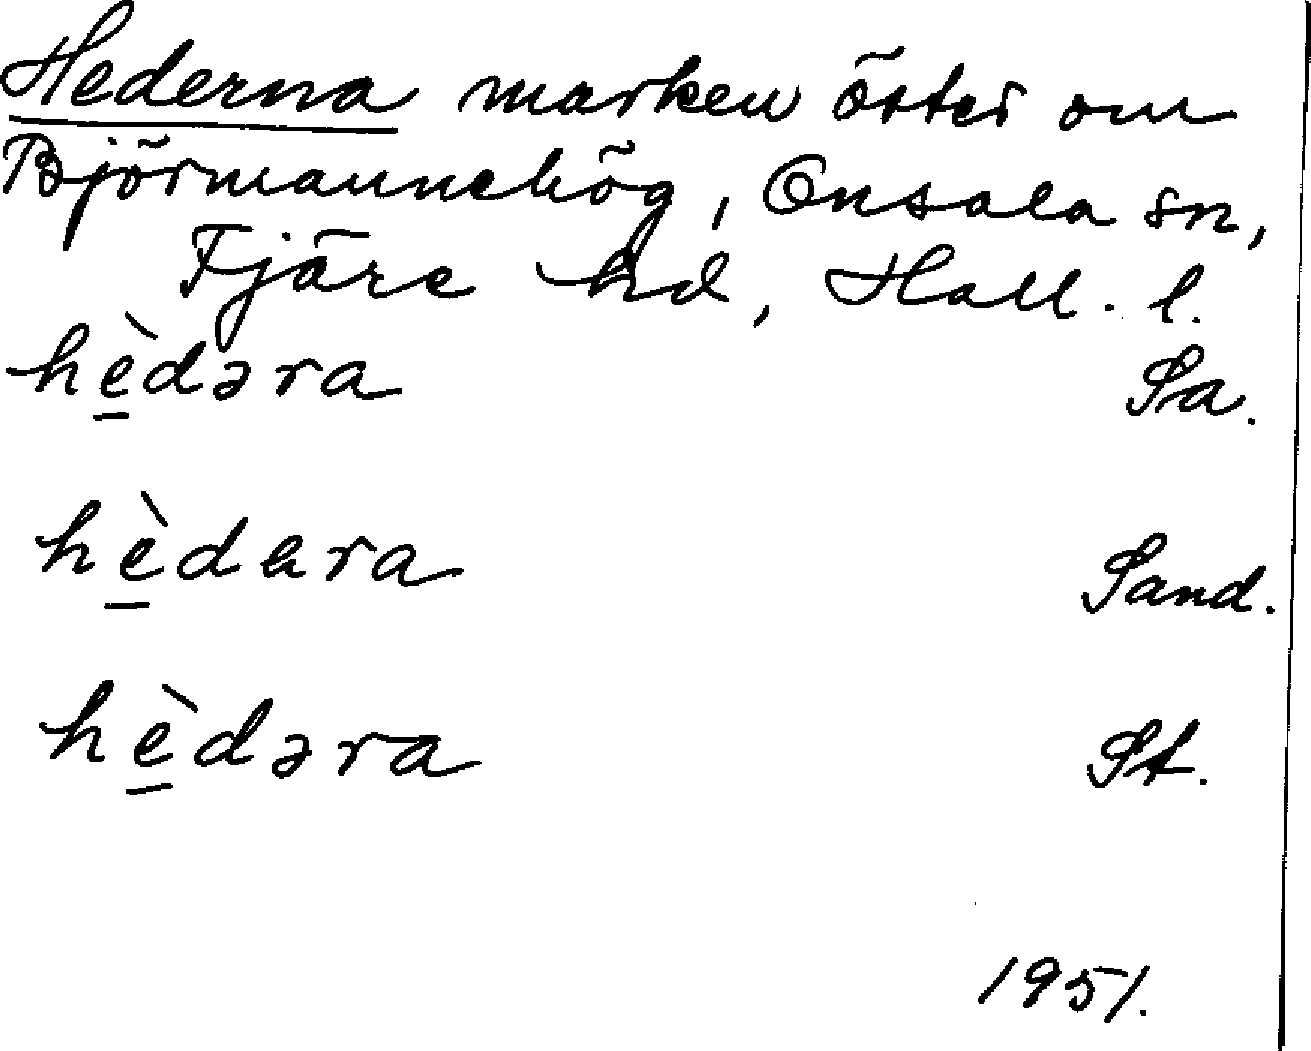 Hederna marken öster om
Björmannehög, Onsala sn,
Fjäre hd, Hall. l.
hèdəra Sa.
hèdera Sand.
hèdəra St.
1951.